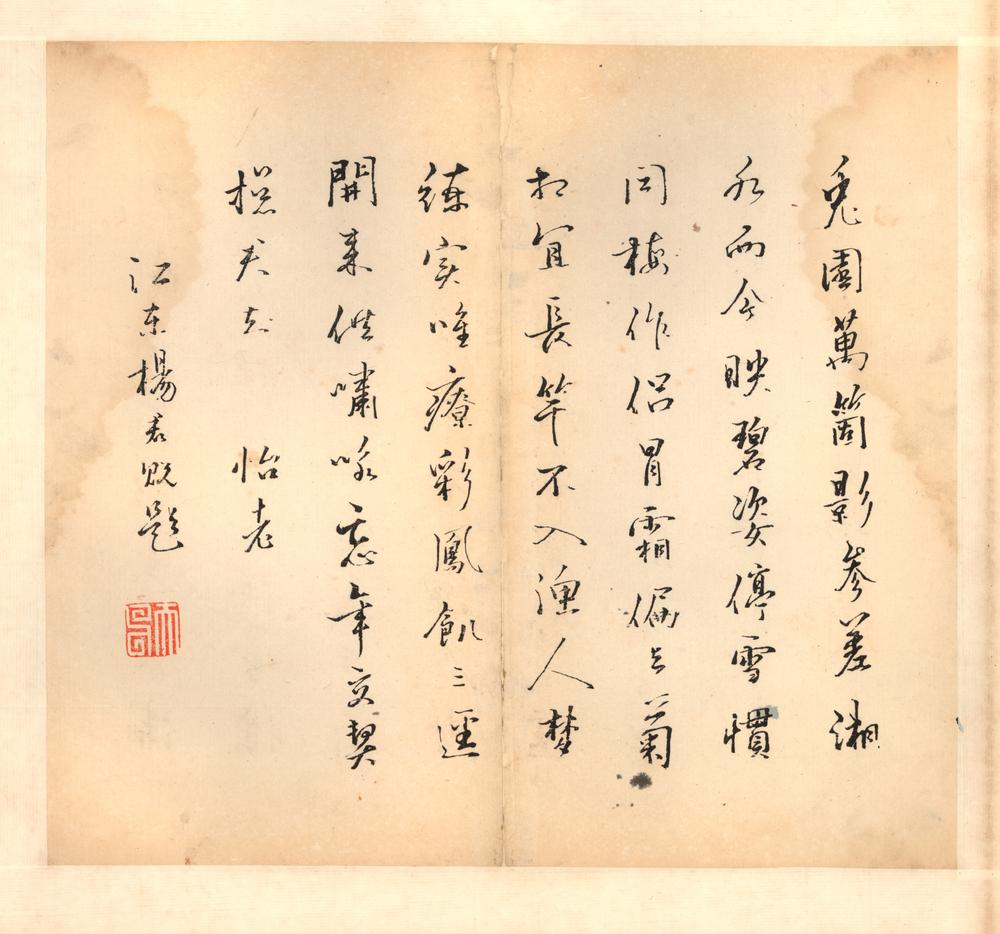 兎園萬箇影參差湘
水而今映碧姿停雪慣
同梅作侶冒霜偏与菊
相宜長竿不入漁人梦
練實唯療彩鳳飢三逕
開來供嘯咏忘年交契
摠君知 怡老
江東楊貺題